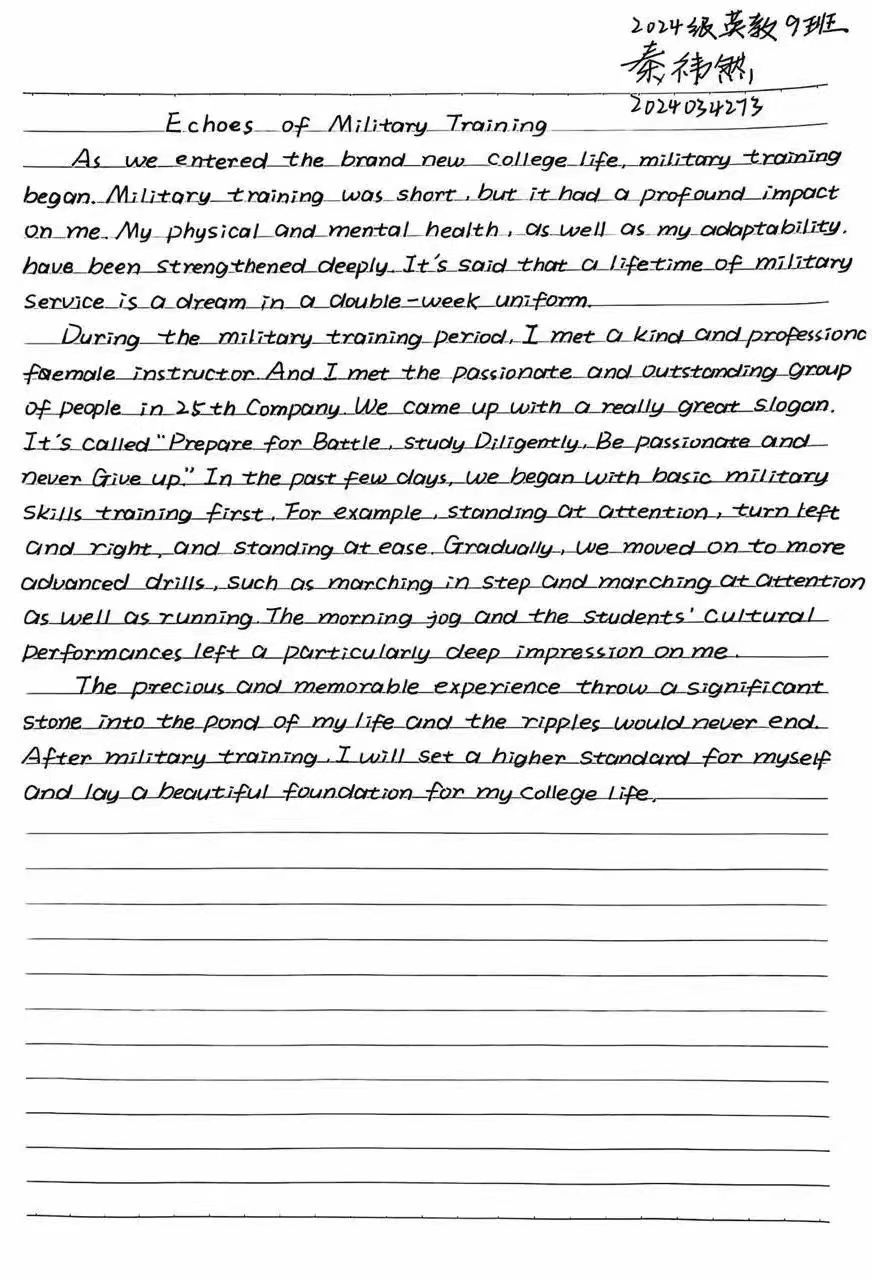 2024级英教9班
秦祎然
2024034273
Echoes of Military Training
As we entered the brand new college life, military training
began. Military training was short, but it had a profound impact
on me. My physical and mental health, as well as my adaptability.
have been strengthened deeply. It's said that a lifetime of military
service is a dream in a double-week uniform.
During the military training period, I met a kind and professiona
faemale instructor. And I met the passionate and outstanding group
of people in 25th Company. We came up with a really great slogan.
It's called "Prepare for Battle, study Diligently, Be passionate and
never Give up." In the past few days, we began with basic military
skills training first. For example, standing at attention, turn left
and right, and standing at ease. Gradually, we moved on to more
advanced drills, such as marching in step and marching at attention
as well as running. The morning jog and the students' cultural
performances left a particularly deep impression on me.
The precious and memorable experience throw a significant
stone into the pond of my life and the ripples would never end.
After military training, I will set a higher standard for myself
and lay a beautiful foundation for my college life.